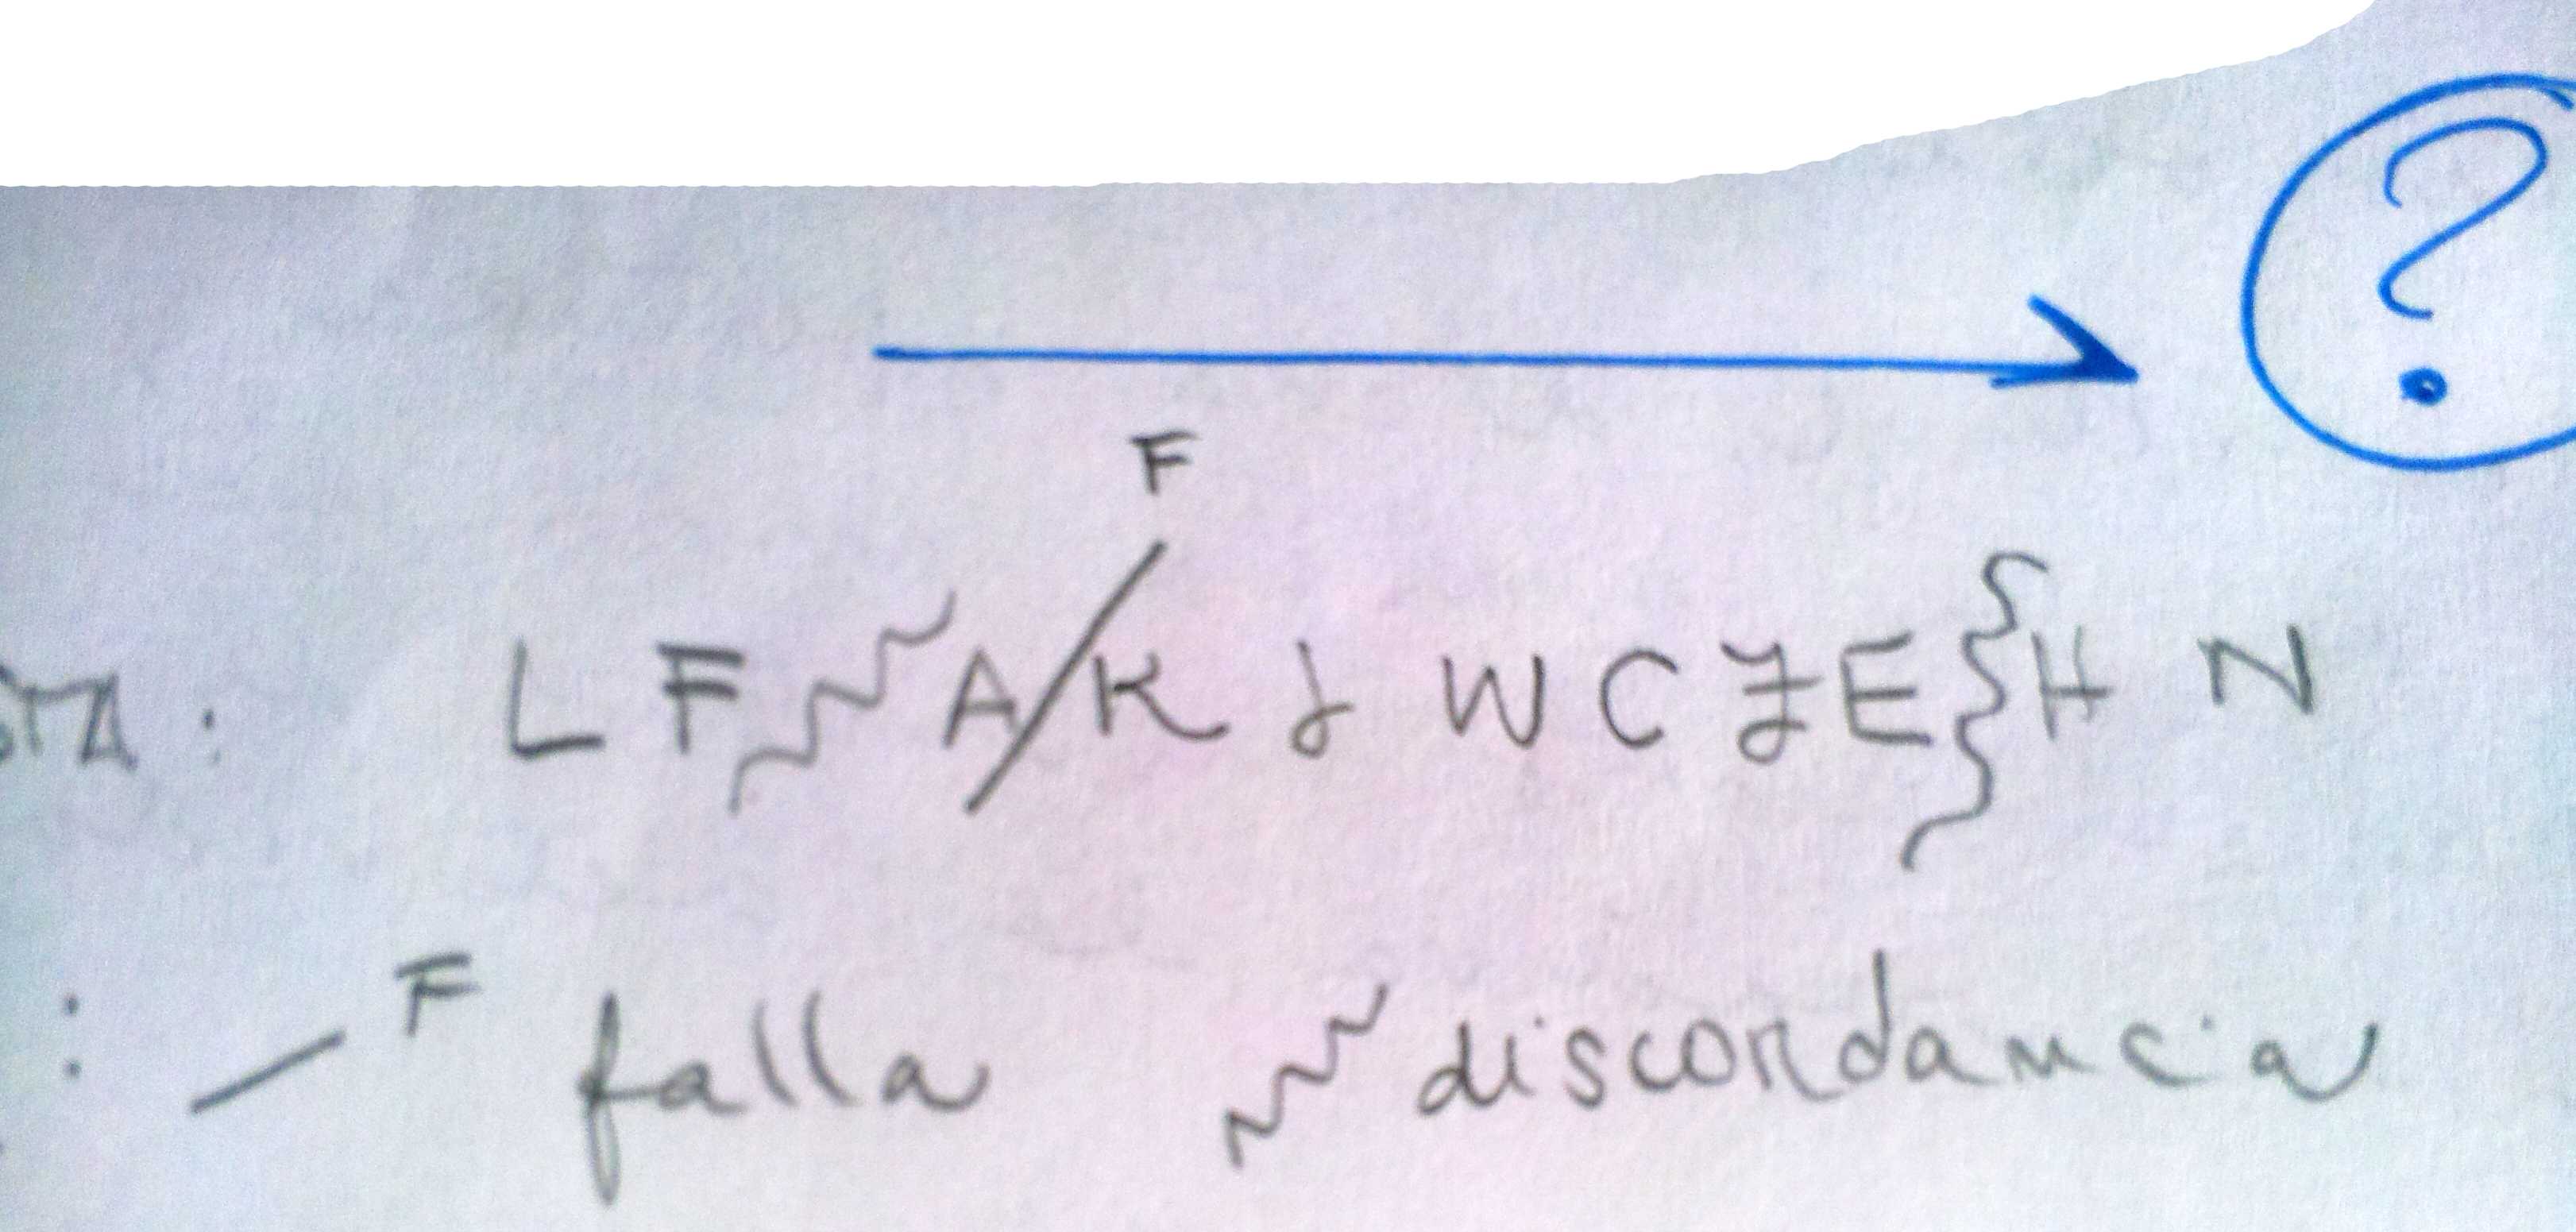 ?
F
L F A K J W C Z E H N
F falla discordancia